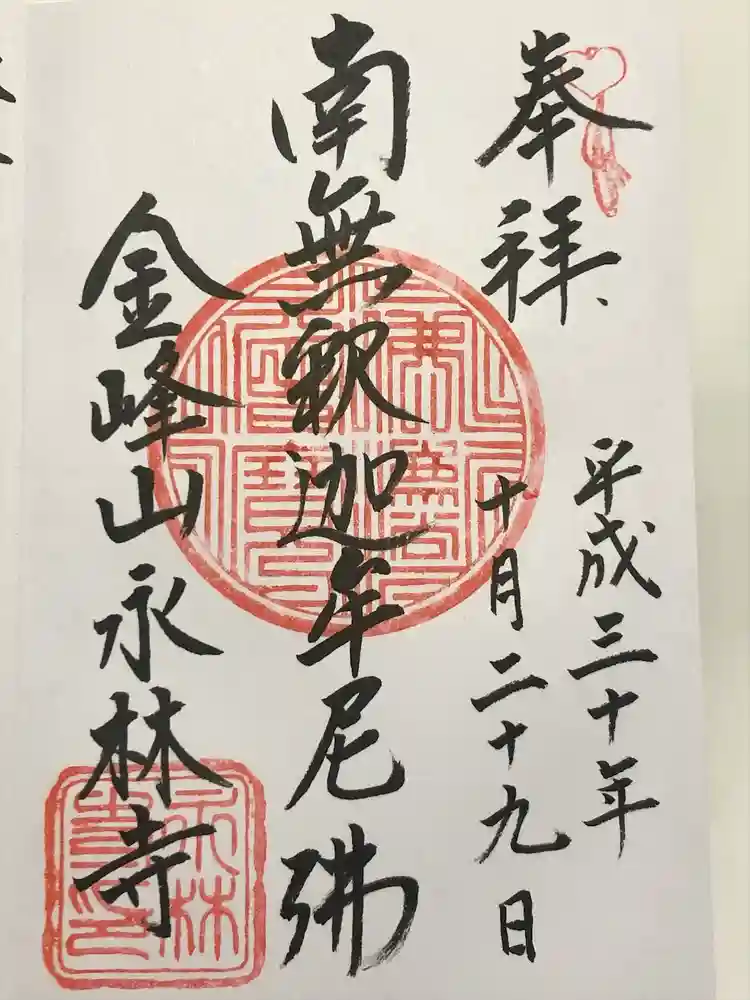 奉拝
平成三十年
十月二十九日
南無釈迦牟尼佛
金峰山永林寺
佛法僧寳
永林寺印